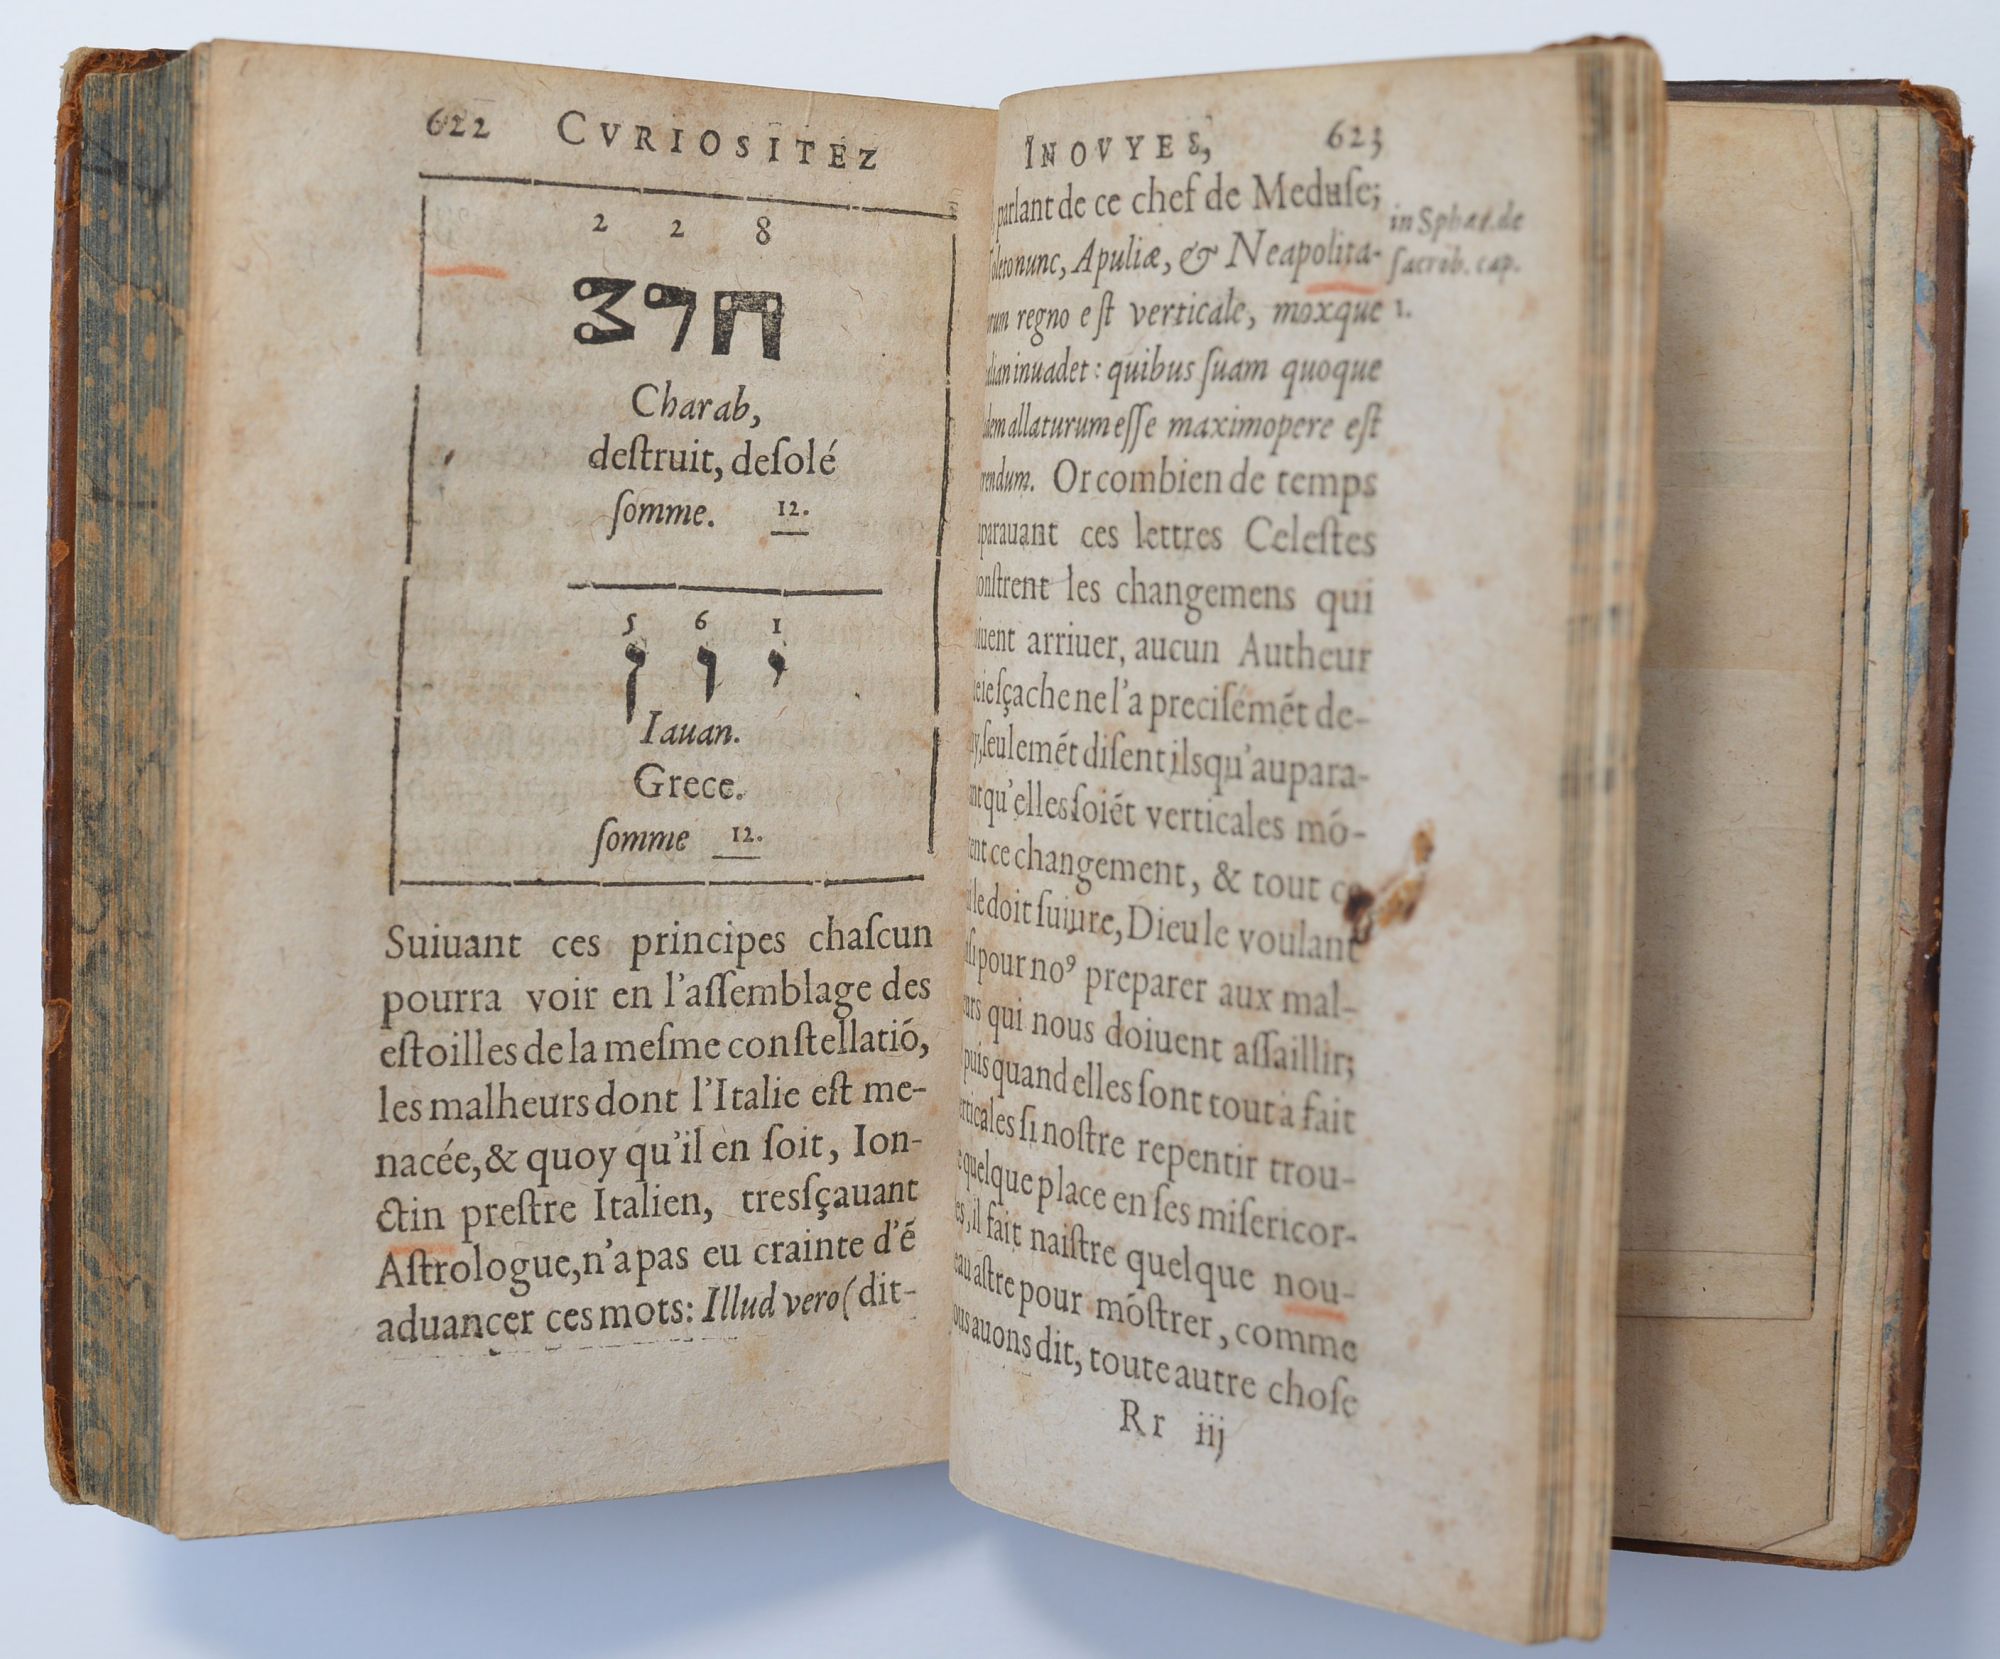 622 CVRIOSITEZ
2 2 8
חרב
Charab,
deſtruit, deſolé
ſomme. 12.
5 6 1
יון
Iauan.
Grece.
ſomme 12.
Suiuant ces principes chaſcun
pourra voir en l'aſſemblage des
eſtoilles de la meſme conſtellatió,
les malheurs dont l'Italie eſt me-
nacée, & quoy qu'il en ſoit, Ion-
ctin preſtre Italien, tresſçauant
Aſtrologue, n'a pas eu crainte d'é
aduancer ces mots: Illud vero (dit-
INOVYES, 623
parlant de ce chef de Meduſe;
nunc, Apuliæ, & Neapolita-
regno eſt verticale, moxque
inuadet: quibus ſuam quoque
allaturum eſſe maximopere eſt
Or combien de temps
ces lettres Celeſtes
les changemens qui
arriuer, aucun Autheur
ſçache ne l'a preciſémét de-
ſeulemét diſent ils qu'aupara-
qu'elles ſoiét verticales mó-
ce changement, & tout ce
le doit ſuiure, Dieu le voulant
pour noꝰ preparer aux mal-
qui nous doiuent aſſaillir;
puis quand elles ſont tout à fait
ſi noſtre repentir trou-
quelque place en ſes miſericor-
il fait naiſtre quelque nou-
aſtre pour móſtrer, comme
auons dit, toute autre choſe
Rr iij
in Sphær. de
ſacrob. cap.
1.